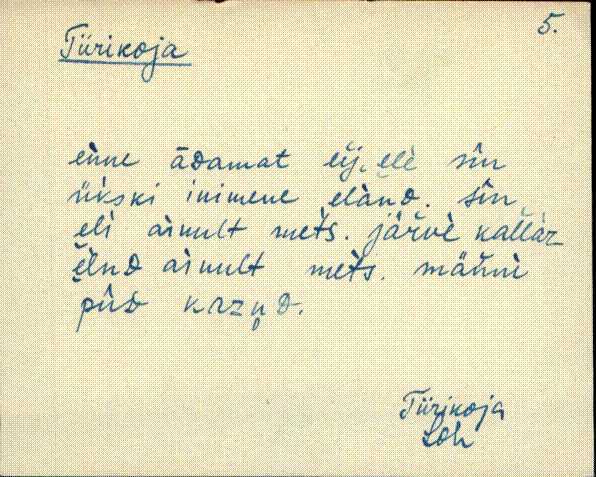 5.
Tiirikoja
eǹne ādamat eij ele sīn
üks̀ki inimene eland. sīn
eli ainult mets. järve kallàz
elnd ainult mets. männi
pūd kazn̥d.
Tiirikoja
Löh